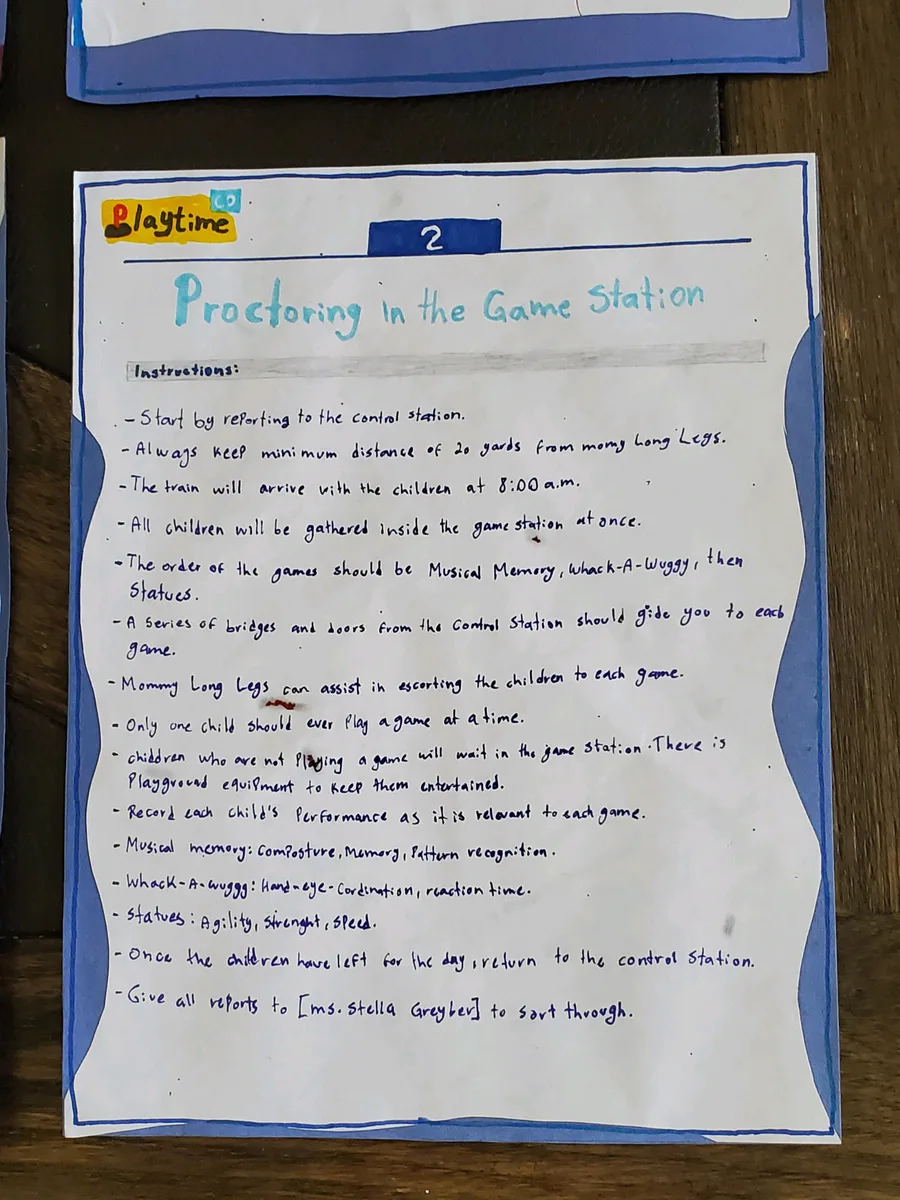 Playtime CO
2
Proctoring in the Game Station
Instructions:
- Start by reporting to the control station.
- Always keep minimum distance of 20 yards from momy Long Legs.
- The train will arrive with the children at 8:00 a.m.
- All children will be gathered inside the game station at once.
- The order of the games should be Musical Memory, Whack-A-Wuggy, then
Statues.
- A Series of bridges and doors from the Control Station should gide you to each
game.
- Mommy Long Legs can assist in escorting the children to each game.
- Only one child should ever Play a game at a time.
- chiddren who are not Playing a game will wait in the game station. There is
Playground equipment to keep them entertained.
- Record each child's Performance as it is relevant to each game.
- Musical memory: Composture, Memory, Pattern recognition.
- Whack-A-wuggy: Hand-eye-Cordination, reaction time.
- Statues: Agility, Strenght, Speed.
- Once the children have left for the day, return to the control station.
- Give all reports to [ms. Stella Greyber] to sort through.